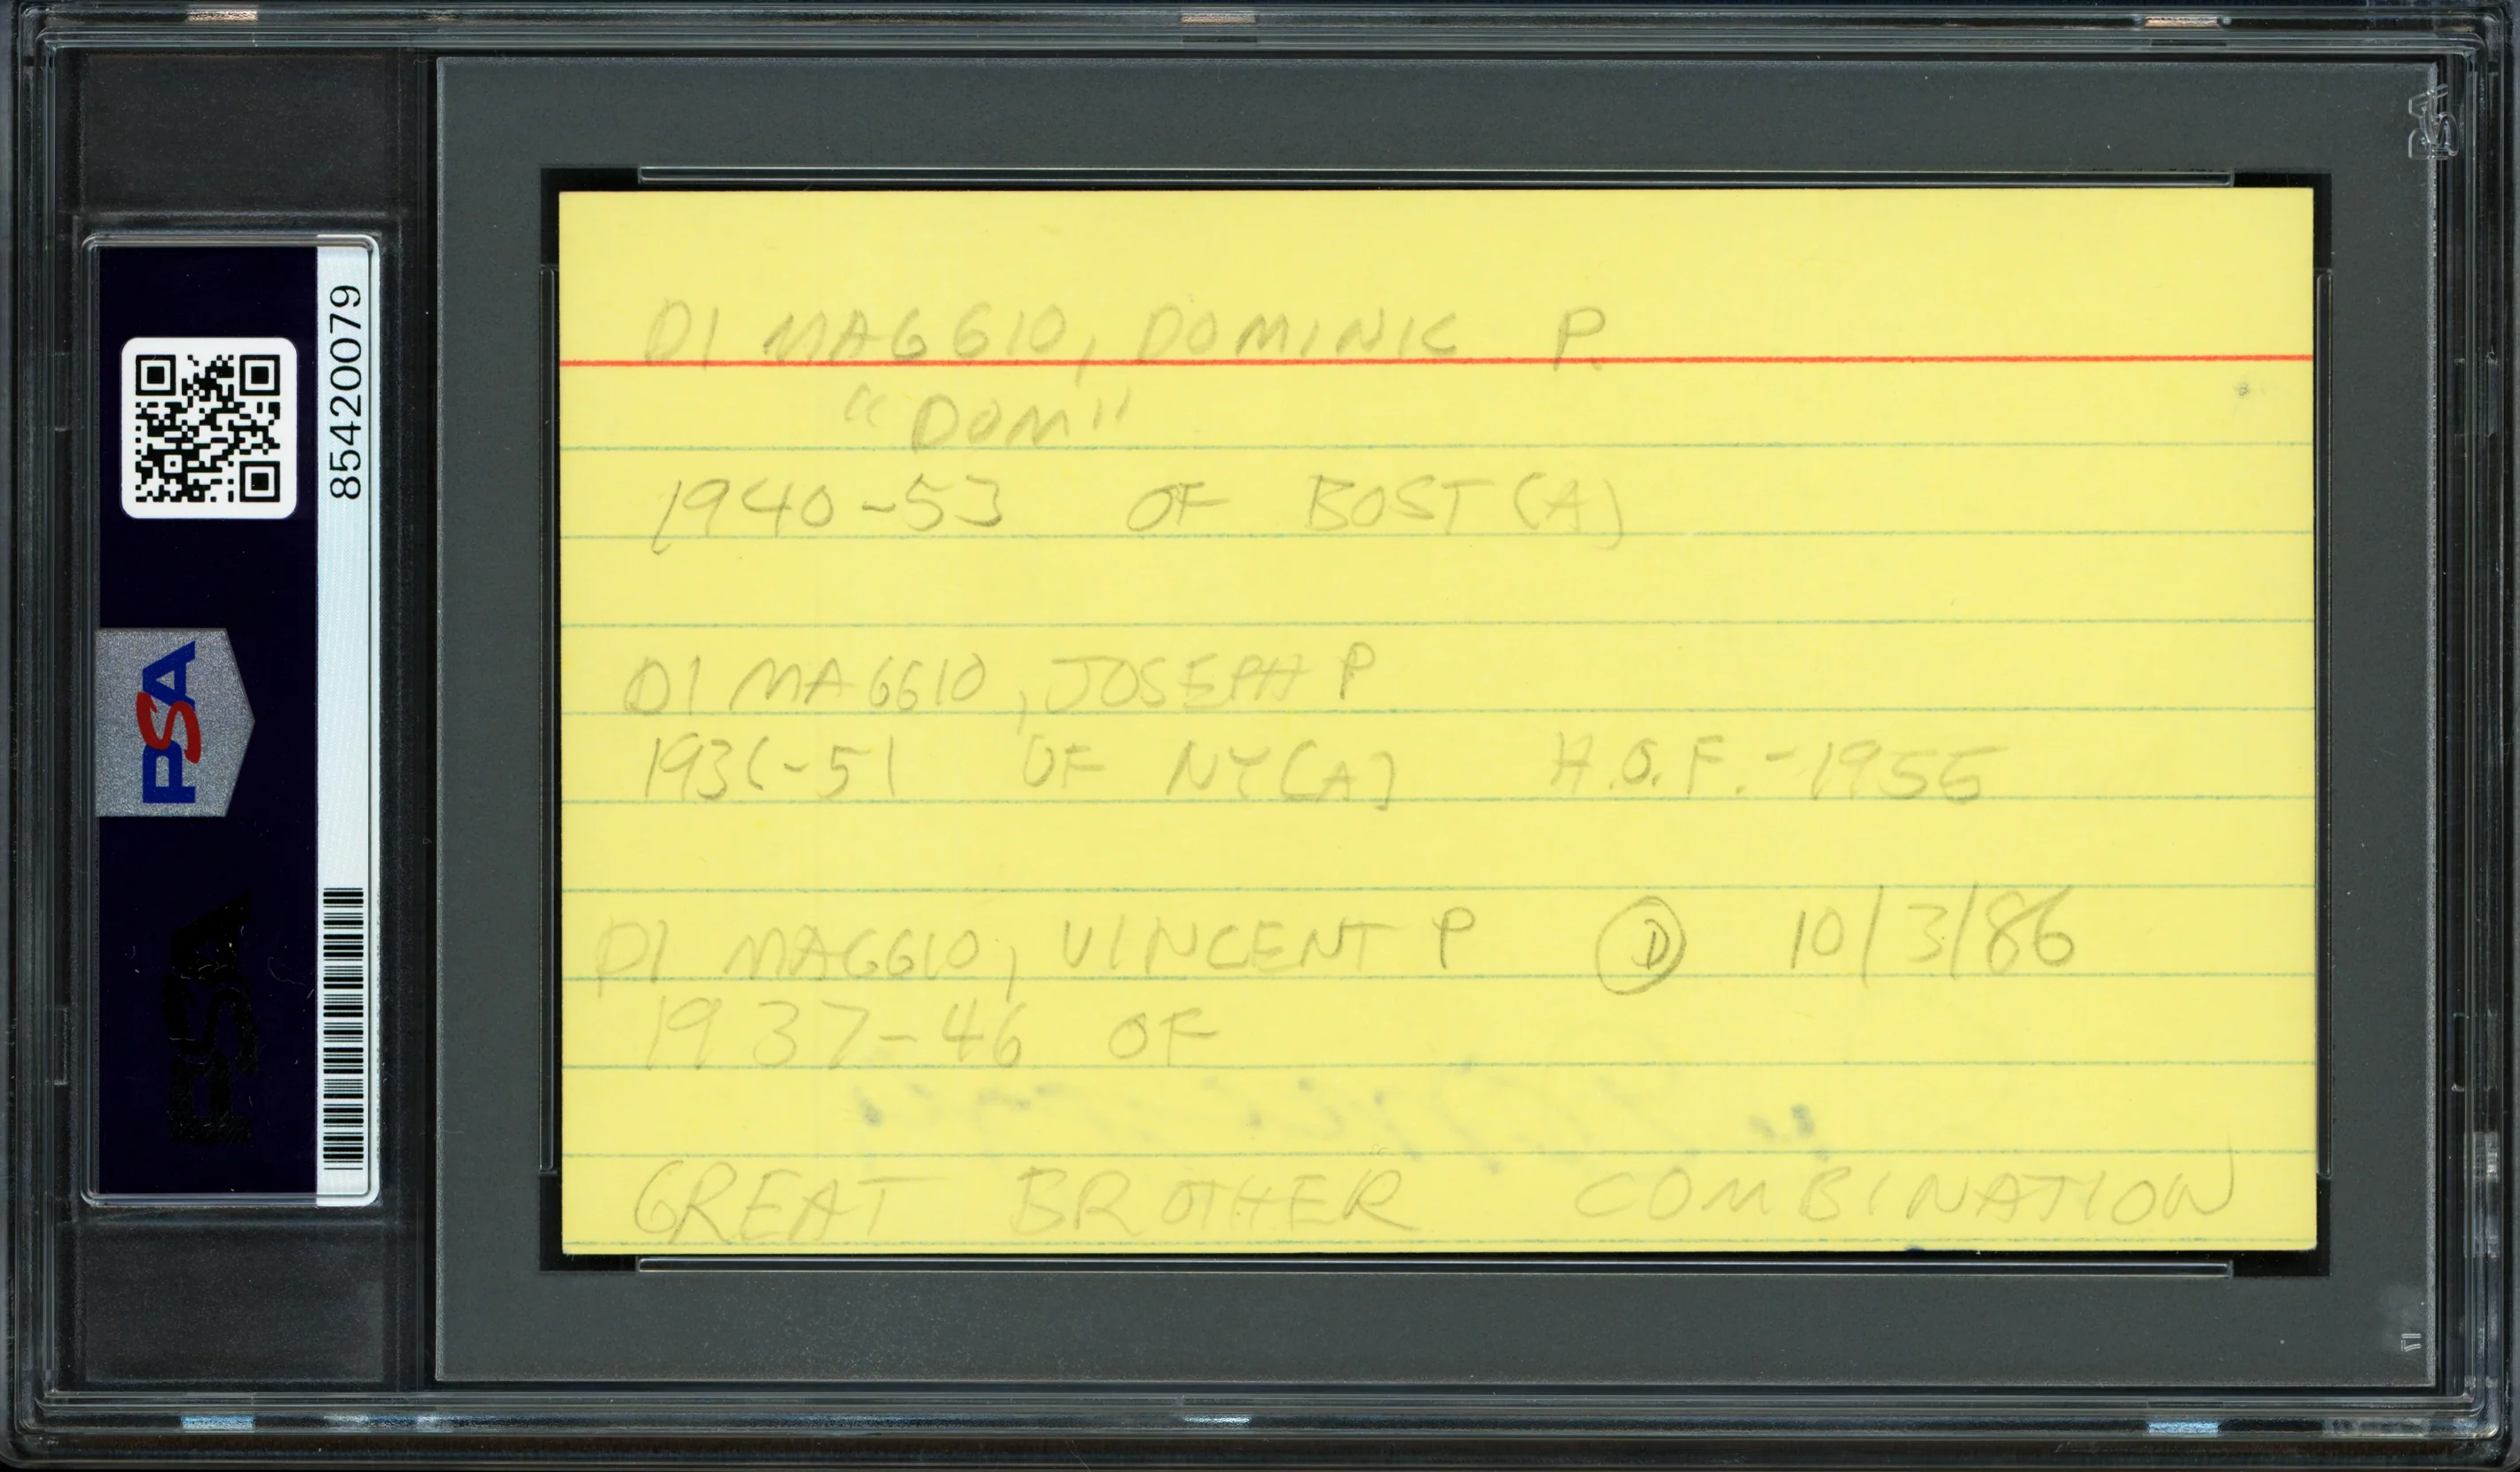 85420079
PSA
DI MAGGIO, DOMINIC P.
"DOM"
1940-53 OF BOST (A)
DI MAGGIO, JOSEPH P
1936-51 OF NY (A) H.O.F. - 1955
DI MAGGIO, VINCENT P D 10/3/86
1937-46 OF
GREAT BROTHER COMBINATION
PSA
PSA